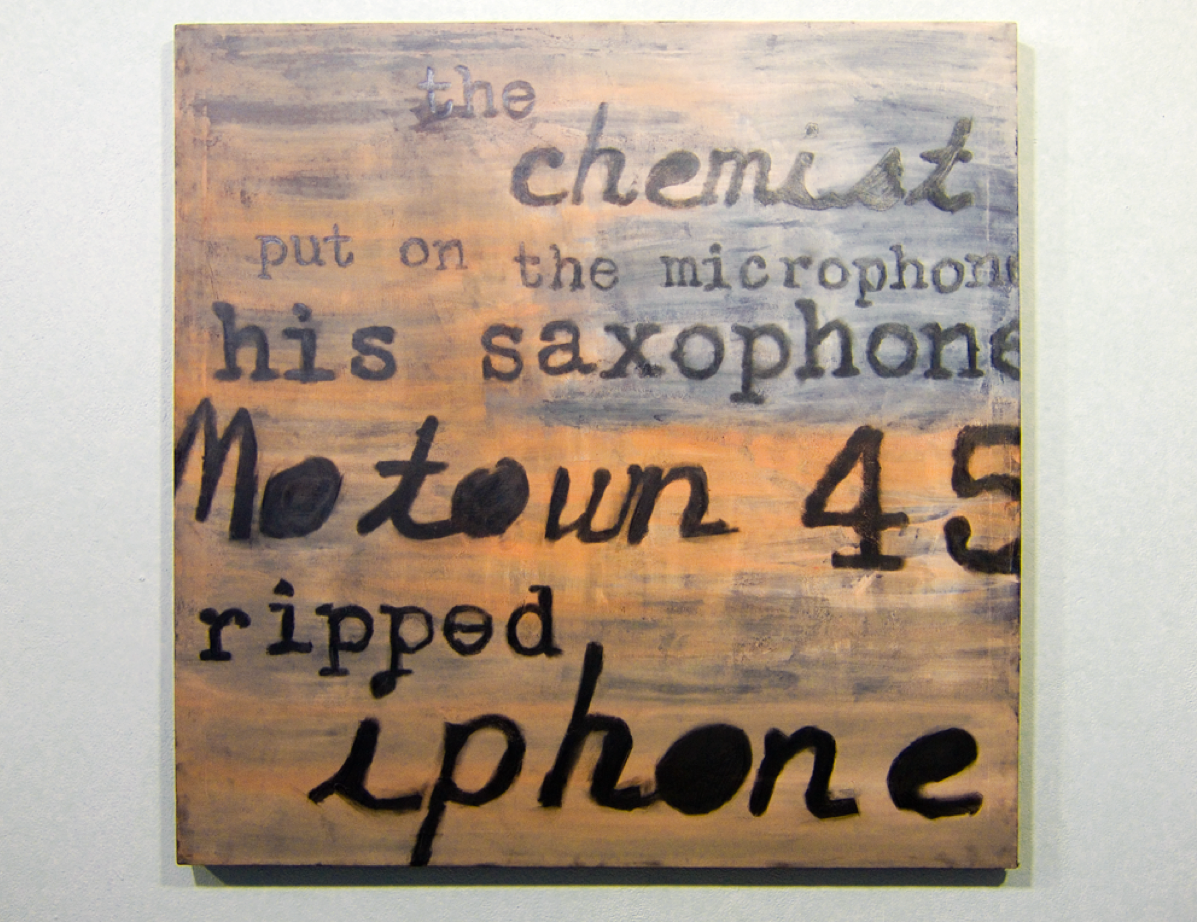 the
chemist
put on the microphone
his saxophone
Motown 45
ripped
iphone